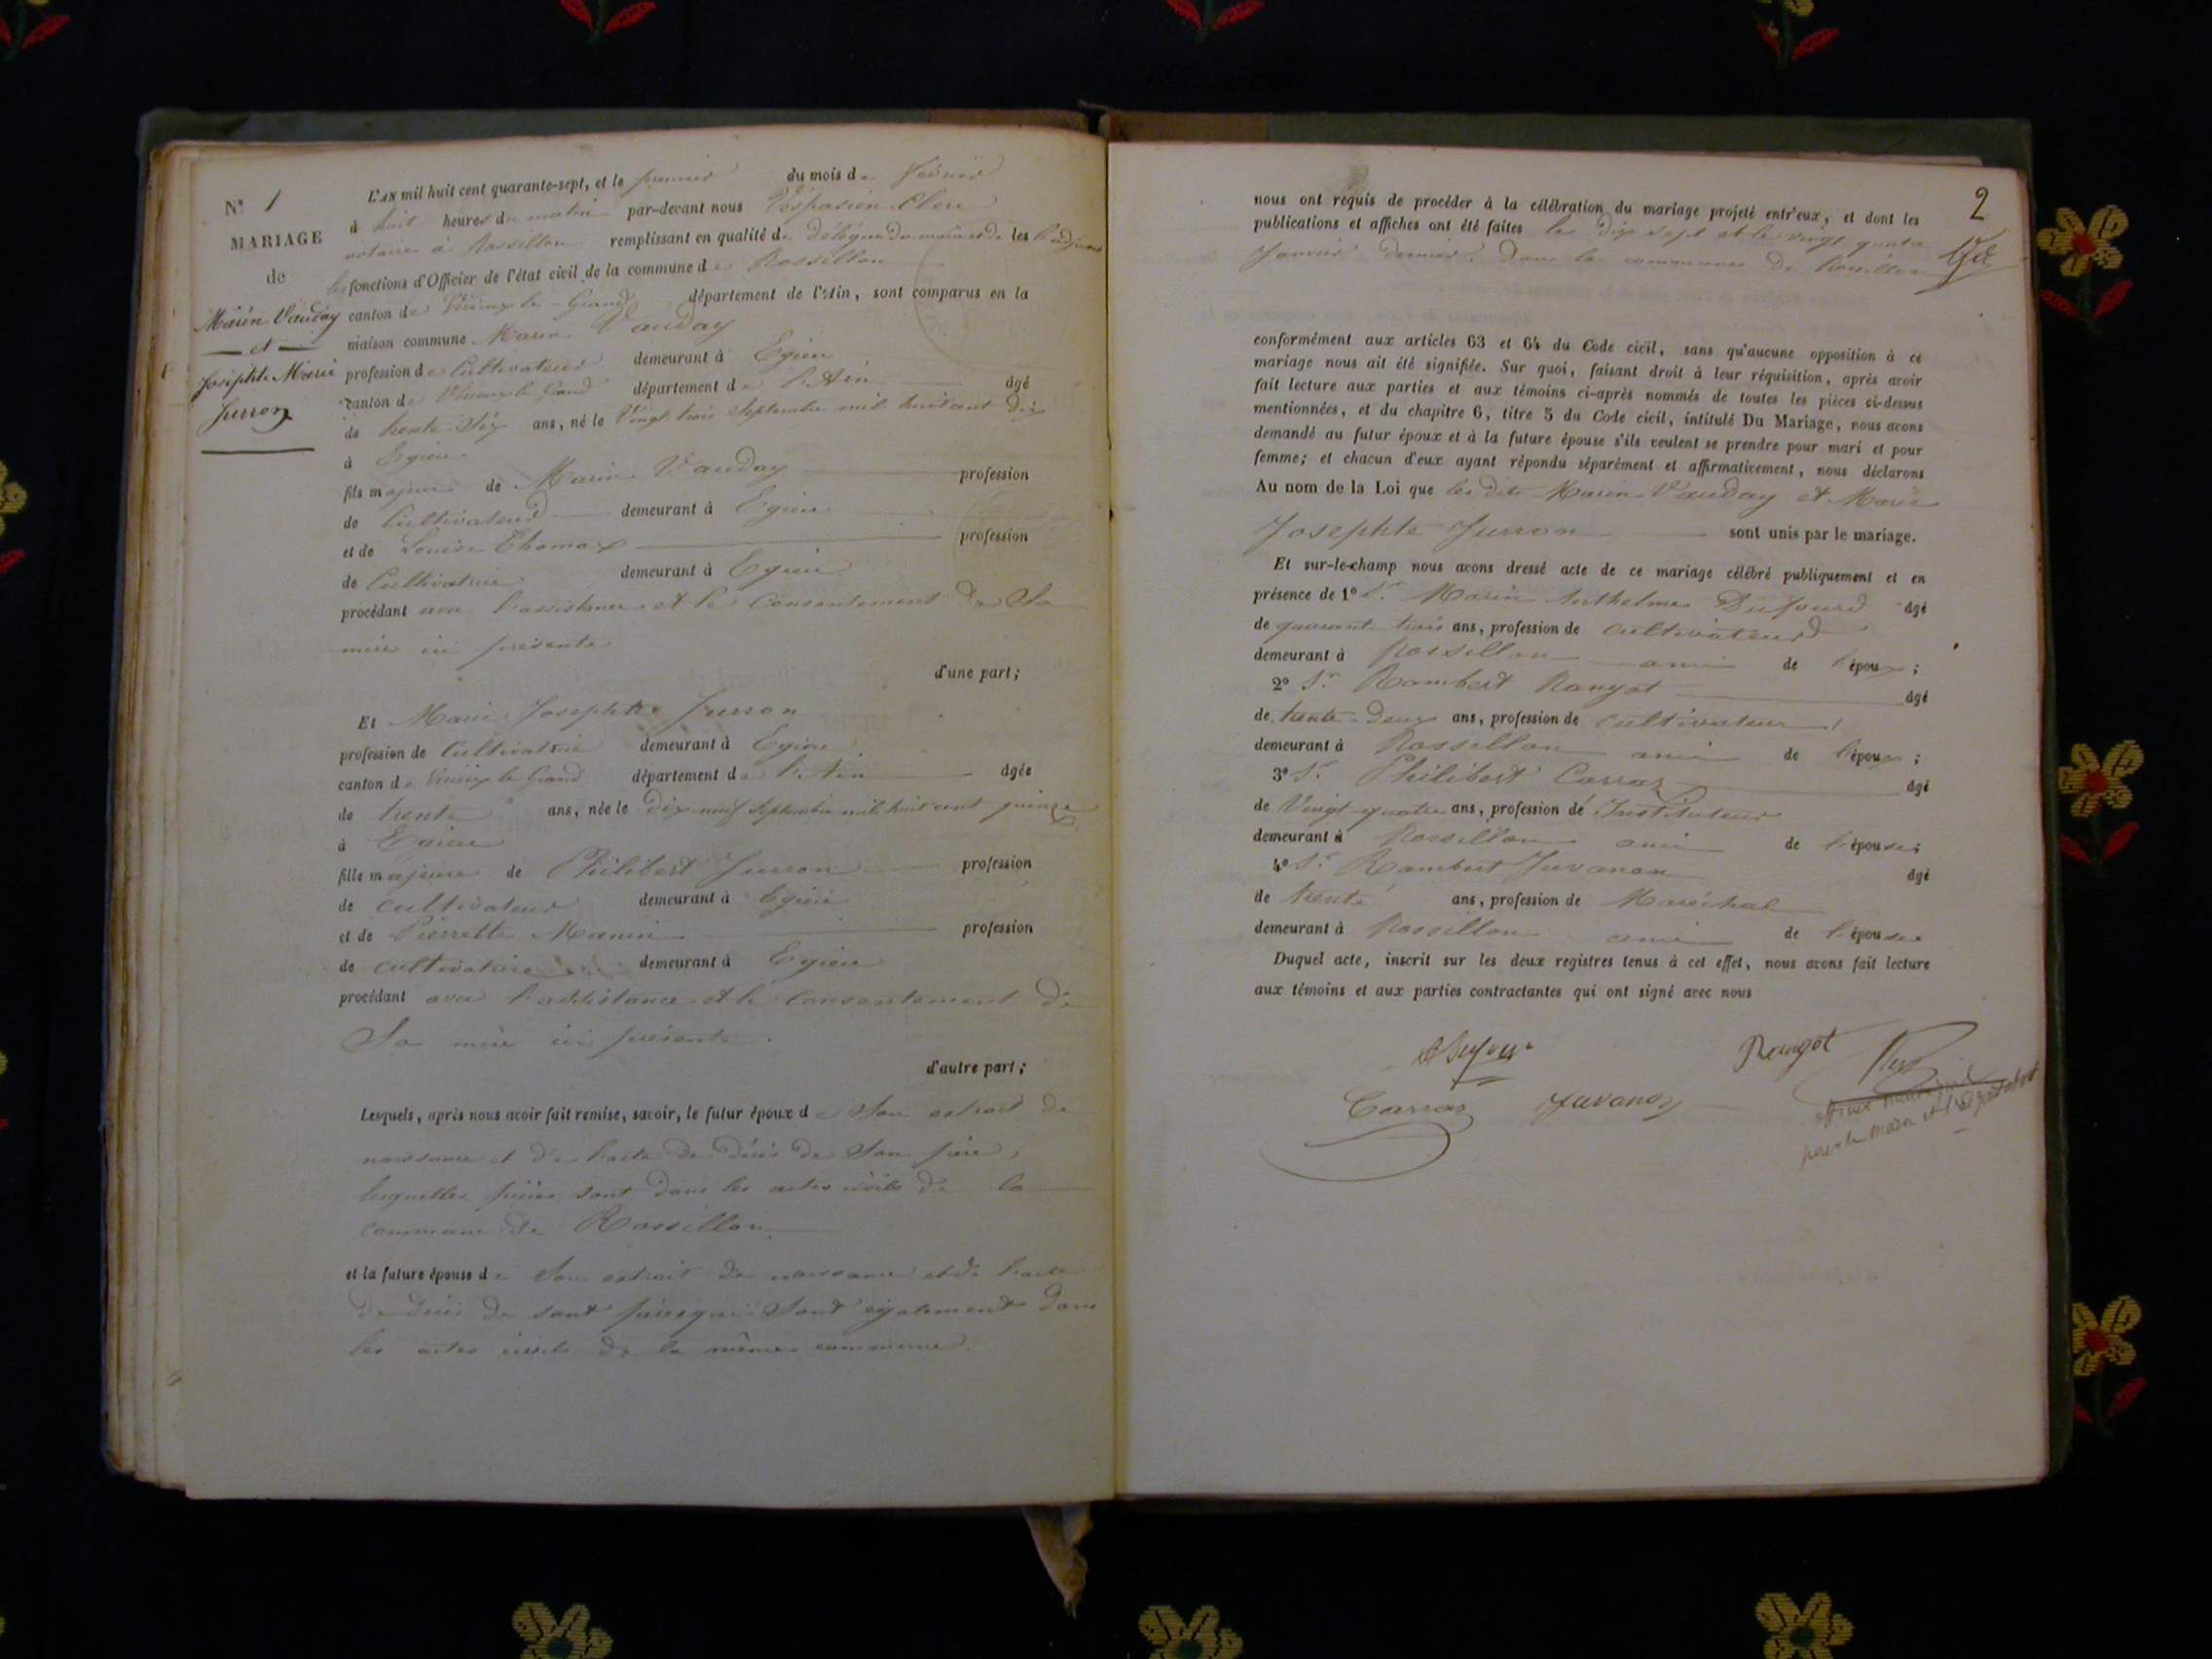 N° 1
MARIAGE
de
Marin Vauday
et
Josephte Marie
Jurron
L'AN mil huit cent quarante-sept, et le premier du mois de février
à huit heures du matin par-devant nous Vespasien Clerc
notaire à Rossillon remplissant en qualité de délégué du maire et de l'adjoint
les fonctions d'Officier de l'état civil de la commune de Rossillon
canton de Virieux le Grand département de l'Ain, sont comparus en la
maison commune Marin Vauday
profession de Cultivateur demeurant à Egieu
canton de Virieux le Grand département de l'Ain âgé
de trente six ans, né le Vingt trois Septembre mil huit cent dix
à Egieu
fils majeur de Marin Vauday profession
de Cultivateur demeurant à Egieu
et de Louise Thomas profession
de Cultivatrice demeurant à Egieu
procédant avec l'assistance et le Consentement de Sa
mère ici présente
d'une part;
Et Marie Josephte Jurron
profession de Cultivatrice demeurant à Egieu
canton de Virieux le Grand département de l'Ain âgée
de trente ans, née le dix neuf Septembre mil huit cent quinze
à Egieu
fille majeure de Philibert Jurron profession
de cultivateur demeurant à Egieu
et de Pierrette Manin profession
de cultivatrice demeurant à Egieu
procédant avec l'assistance et le Consentement de
Sa mère ici présente.
d'autre part;
Lesquels, après nous avoir fait remise, savoir, le futur époux de Son extrait de
naissance et de l'acte de décès de Son père,
lesquelles pièces sont dans les actes civils de la
commune de Rossillon
et la future épouse de Son extrait de naissance et de l'acte
de décès de sont père qui Sont également dans
les actes civils de la même commune.
2
nous ont requis de procéder à la célébration du mariage projeté entr'eux, et dont les
publications et affiches ont été faites les dix sept et le vingt quatre
Janvier dernier, dans la commune de Rossillon
conformément aux articles 63 et 64 du Code civil, sans qu'aucune opposition à ce
mariage nous ait été signifiée. Sur quoi, faisant droit à leur réquisition, après avoir
fait lecture aux parties et aux témoins ci-après nommés de toutes les pièces ci-dessus
mentionnées, et du chapitre 6, titre 5 du Code civil, intitulé Du Mariage, nous avons
demandé au futur époux et à la future épouse s'ils veulent se prendre pour mari et pour
femme; et chacun d'eux ayant répondu séparément et affirmativement, nous déclarons
Au nom de la Loi que les dits Marin Vauday et Marie
Josephte Jurron sont unis par le mariage.
Et sur-le-champ nous avons dressé acte de ce mariage célébré publiquement et en
présence de 1° Sr Marin Anthelme Dufourd âgé
de quarante trois ans, profession de cultivateur
demeurant à Rossillon ami de l'époux;
2° Sr Rambert Rangot âgé
de trente-deux ans, profession de cultivateur
demeurant à Rossillon ami de l'époux;
3° Sr Philibert Carraz âgé
de Vingt quatre ans, profession de Instituteur
demeurant à Rossillon ami de l'épouse;
4° Sr Rambert Juvanon âgé
de trente ans, profession de Maréchal
demeurant à Rossillon ami de l'épouse
Duquel acte, inscrit sur les deux registres tenus à cet effet, nous avons fait lecture
aux témoins et aux parties contractantes qui ont signé avec nous
Rangot
Carraz Juvanon